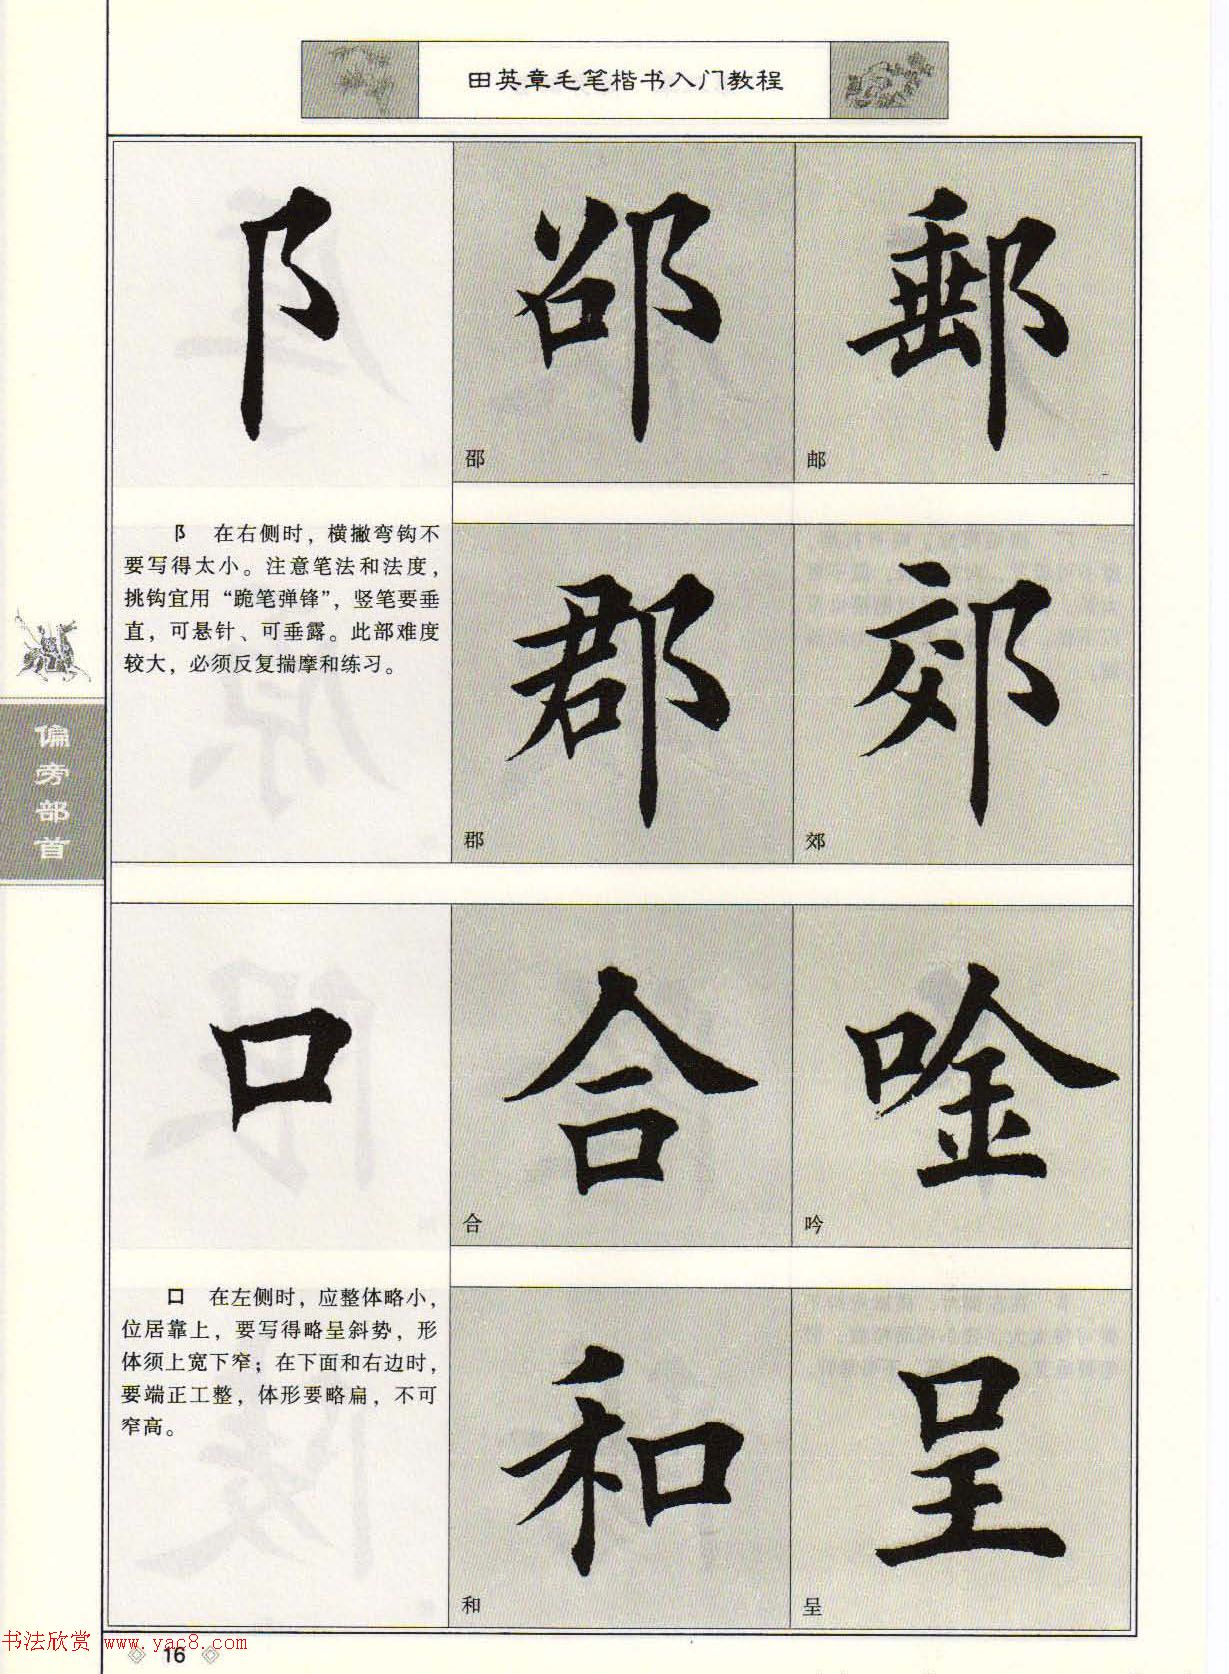 田英章毛笔楷书入门教程
阝
邵
郵
邵
邮
阝 在右侧时，横撇弯钩不
要写得太小。注意笔法和法度，
挑钩宜用“跪笔弹锋”，竖笔要垂
直，可悬针、可垂露。此部难度
较大，必须反复揣摩和练习。
郡
郊
郡
郊
偏旁部首
口
合
唫
合
吟
口 在左侧时，应整体略小，
位居靠上，要写得略呈斜势，形
体须上宽下窄；在下面和右边时，
要端正工整，体形要略扁，不可
窄高。
和
呈
和
呈
书法欣赏 www.yac8.com
16